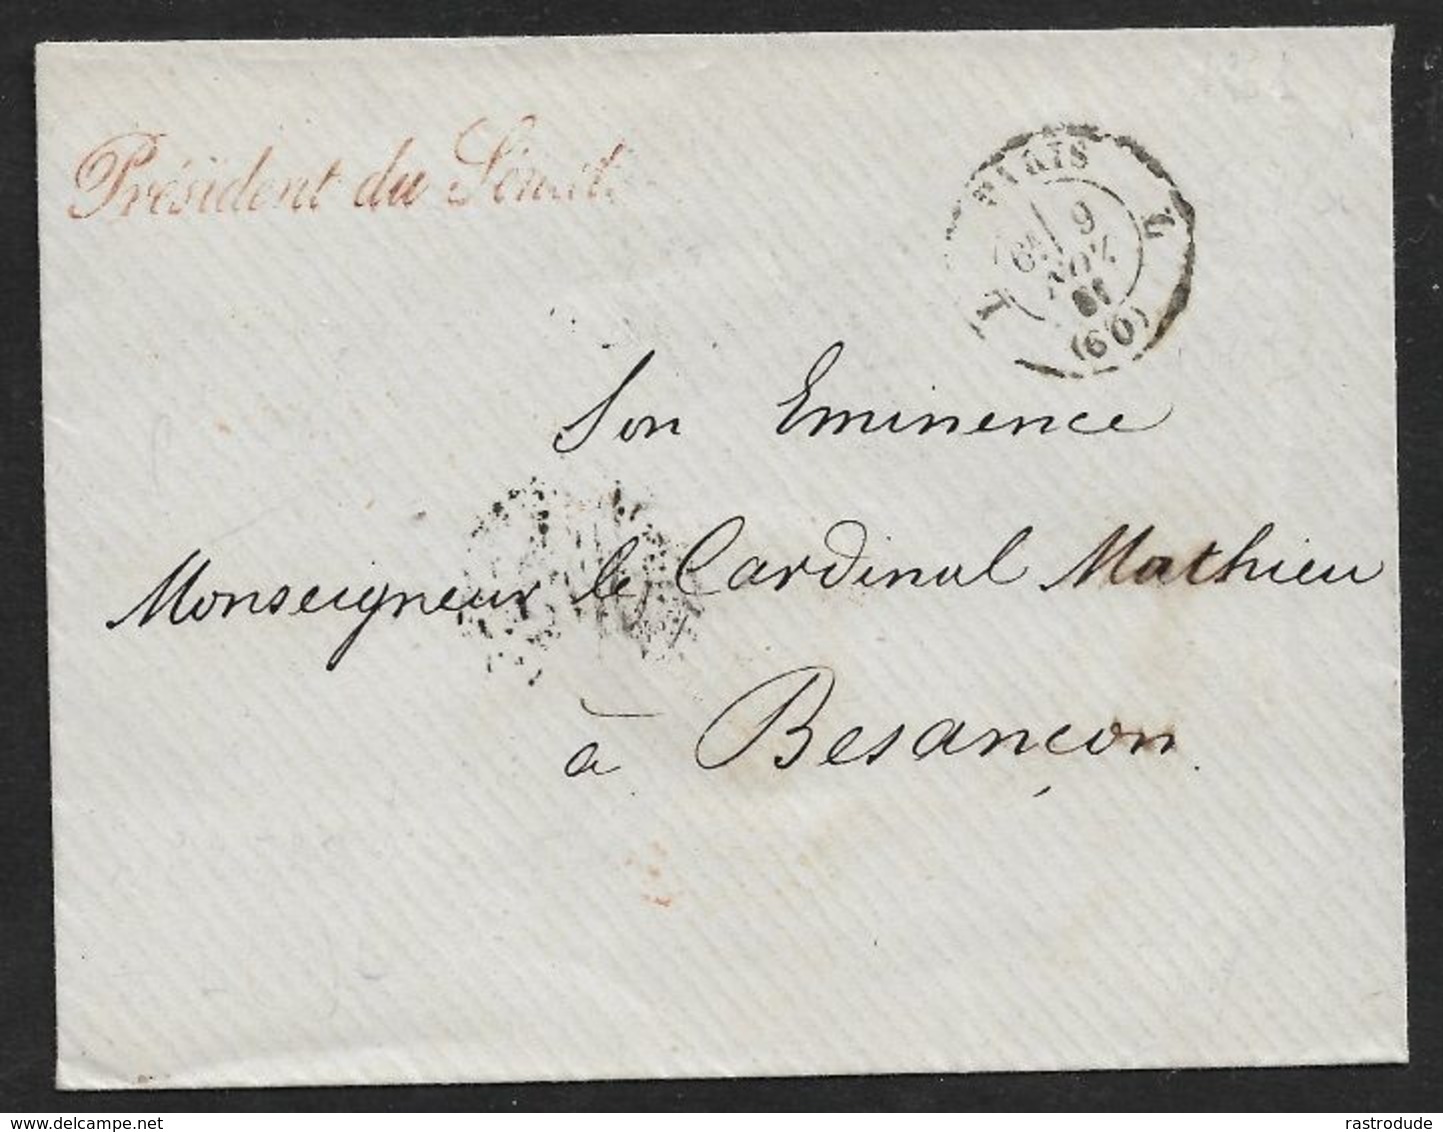 Président du Sénat
PARIS
9
NOV.
(60)
Son Eminence
Monseigneur le Cardinal Mathieu
à Besançon.
www.delcampe.net
rastrodude